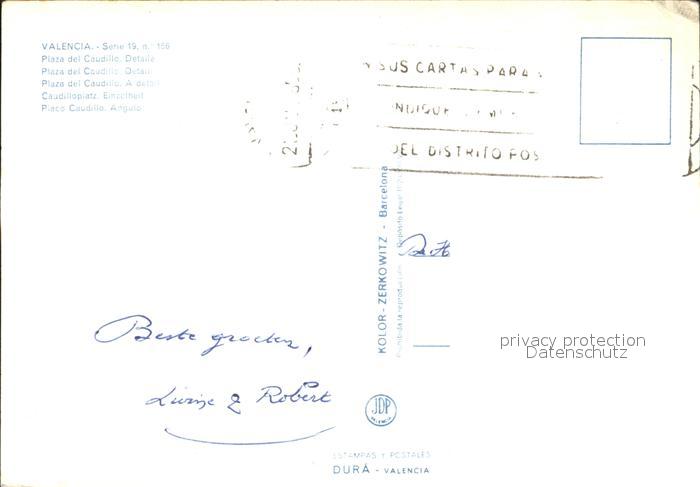 VALENCIA. - Serie 19, n.º 166
Plaza del Caudillo. Detalle
Plaza del Caudillo. Detail
Plaza del Caudillo. A detail
Caudilloplatz. Einzelheit
Placo Caudillo. Angulo
SUS CARTAS PARA
INDIQUE
DEL DISTRITO POS
KOLOR-ZERKOWITZ - Barcelona
Prohibida la reproducción Depósito Legal
Beste groeten,
& Robert
privacy protection
Datenschutz
JDP
VALENCIA
ESTAMPAS Y POSTALES
DURÁ - VALENCIA